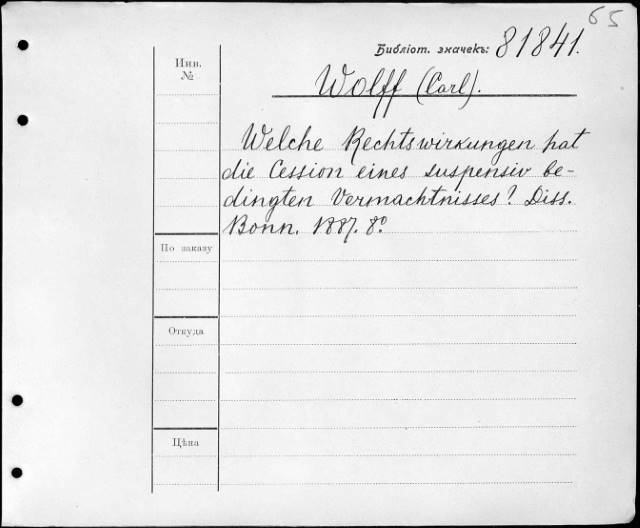 65
Библіот. значекъ: 81841.
Инв.
№
Wolff (Carl).
Welche Rechtswirkungen hat
die Cession eines suspensiv be-
dingten Vermachtnisses? Diss.
Bonn. 1887. 8°
По заказу
Откуда
Цѣна